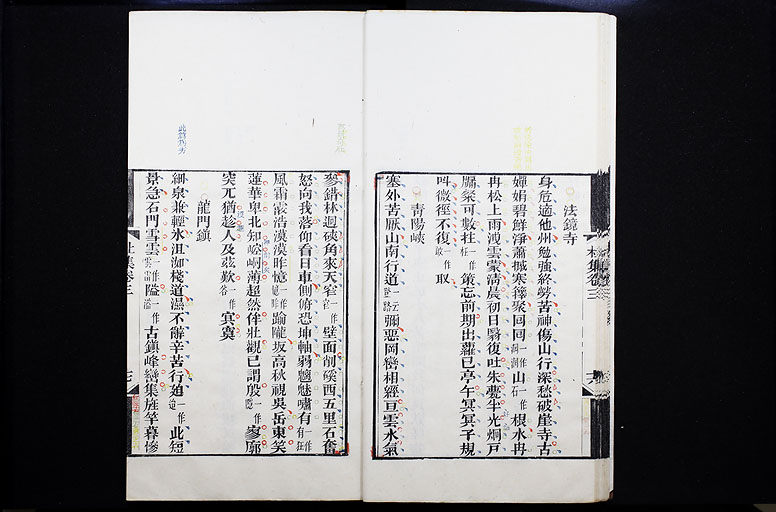 法鏡寺
身危適他州勉強終勞苦神傷山行深愁破崖寺古
嬋娟碧鮮淨蕭摵寒籜聚回回一作山一作石根水冉
冉松上雨洩雲蒙清晨初日翳復吐朱甍半光炯戶
牖粲可數拄一作策忘前期出蘿已亭午冥冥子規
叫微徑不復一作敢取
青陽峽
塞外苦厭山南行道一云登路彌惡岡巒相經亙雲水氣
參錯林迴硤角來天窄一作壁面削磎西五里石奮
怒向我落仰看日車側俯恐坤軸弱魑魅嘯有一作在
風霜霰浩漠漠昨憶一作憶昨踰隴坂高秋視吳岳東笑
蓮華卑北知崆峒薄超然侔壯觀已謂殷一作隱寥廓
突兀猶趁人及茲歎一作冥寞
龍門鎮
細泉兼輕冰沮洳棧道濕不辭辛苦行迫一作此短
景急石門雪雲一作雲雷隘一作溢古鎮峰巒集旌竿暮慘
杜集卷三